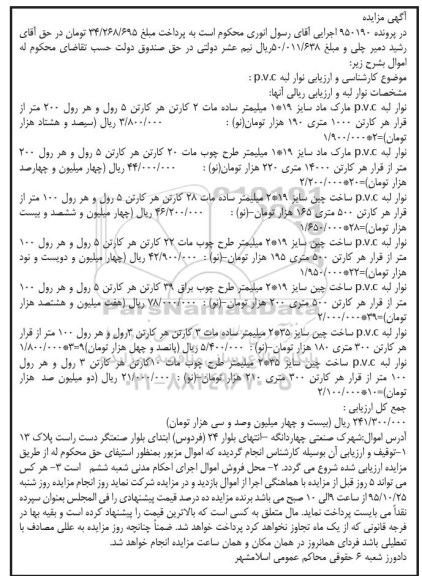 آگهی مزایده
در پرونده ۹۵۰۱۹۰ اجرایی آقای رسول انوری محکوم است به پرداخت مبلغ ۳۴/۲۶۸/۶۹۵ تومان در حق آقای
رشید دمیر چلی و مبلغ ۵۰/۰۱۱/۶۳۸ریال نیم عشر دولتی در حق صندوق دولت حسب تقاضای محکوم له
اموال بشرح زیر:
موضوع کارشناسی و ارزیابی نوار لبه p.v.c :
مشخصات نوار لبه و ارزیابی ریالی آنها:
نوار لبه p.v.c مارک ماد سایز ۱۹*۱ میلیمتر ساده مات ۲ کارتن هر کارتن ۵ رول و هر رول ۲۰۰ متر از
قرار هر کارتن ۱۰۰۰ متری ۱۹۰ هزار تومان(نو) : ۳/۸۰۰/۰۰۰ ریال (سیصد و هشتاد هزار
تومان)=۲*۱/۹۰۰/۰۰۰
نوار لبه p.v.c مارک ماد سایز ۱۹*۱ میلیمتر طرح چوب مات ۲۰ کارتن هر کارتن ۵ رول و هر رول ۲۰۰
متر از قرار هر کارتن ۱۴۰۰۰ متری ۲۲۰ هزار تومان(نو): ۴۴/۰۰۰/۰۰۰ ریال (چهار میلیون و چهارصد
هزار تومان)=۲۰*۲/۲۰۰/۰۰۰
نوار لبه p.v.c ساخت چین سایز ۱۹*۲ میلیمتر ساده مات ۲۸ کارتن هر کارتن ۵ رول و هر رول ۱۰۰ متر از
قرار هر کارتن ۵۰۰ متری ۱۶۵ هزار تومان-(نو) : ۴۶/۲۰۰/۰۰۰ ریال (چهار میلیون و ششصد و بیست
هزار تومان)=۲۸*۱/۶۵۰/۰۰۰
نوار لبه p.v.c ساخت چین سایز ۱۹*۲ میلیمتر طرح چوب مات ۲۲ کارتن هر کارتن ۵ رول و هر رول ۱۰۰
متر از قرار هر کارتن ۵۰۰ متری ۱۹۵ هزار تومان-(نو) : ۴۲/۹۰۰/۰۰۰ ریال (چهار میلیون و دویست و نود
هزار تومان)=۲۲*۱/۹۵۰/۰۰۰
نوار لبه p.v.c ساخت چین سایز ۱۹*۲ میلیمتر طرح چوب براق ۳۹ کارتن هر کارتن ۵ رول و هر رول ۱۰۰
متر از قرار هر کارتن ۵۰۰ متری ۲۰۰ هزار تومان-(نو) : ۷۸/۰۰۰/۰۰۰ ریال (هفت میلیون و هشتصد هزار
تومان)=۳۹*۲/۰۰۰/۰۰۰
نوار لبه p.v.c ساخت چین سایز ۳۵*۲ میلیمتر ساده مات ۳ کارتن هر کارتن ۳رول و هر رول ۱۰۰ متر از قرار
هر کارتن ۳۰۰ متری ۱۸۰ هزار تومان-(نو) : ۵/۴۰۰/۰۰۰ ریال (پانصد و چهل هزار تومان)=۳*۱/۸۰۰/۰۰۰
نوار لبه p.v.c ساخت چین سایز ۳۵*۲ میلیمتر طرح چوب مات ۱۰کارتن هر کارتن ۳ رول و هر رول
۱۰۰ متر از قرار هر کارتن ۳۰۰ متری ۲۱۰ هزار تومان-(نو) : ۲۱/۰۰۰/۰۰۰ ریال (دو میلیون صد هزار
تومان)=۱۰*۲/۱۰۰/۰۰۰
جمع کل ارزیابی :
۲۴۱/۳۰۰/۰۰۰ ریال (بیست و چهار میلیون وصد و سی هزار تومان)
آدرس اموال:شهرک صنعتی چهاردانگه –انتهای بلوار ۲۴ (فردوس) ابتدای بلوار صنعتگر دست راست پلاک ۱۳
۱-توقیف و ارزیابی آن بوسیله کارشناس انجام گردیده که اموال مزبور بمنظور استیفای حق محکوم له از طریق
مزایده ارزیابی شده شروع می گردد. ۲- محل فروش اموال اجرای احکام مدنی شعبه ششم است ۳- هر کس
می تواند ۵ روز قبل از مزایده با هماهنگی اجرا از اموال بازدید و در مزایده شرکت نماید روز انجام مزایده روز شنبه
۹۵/۱۰/۲۵ از ساعت ۹الی ۱۰ صبح می باشد برنده مزایده ده درصد قیمت پیشنهادی را فی المجلس بعنوان سپرده
نقداً می بایست پرداخت نماید. مال متعلق به کسی است که بالاترین قیمت را پیشنهاد کرده است و بقیه بها در
فرجه قانونی که از یک ماه تجاوز نخواهد کرد پرداخت خواهد شد. ضمناً چنانچه روز مزایده به عللی مصادف با
تعطیلی باشد فردای همانروز در همان مکان و همان ساعت مزایده انجام خواهد شد.
دادورز شعبه ۶ حقوقی محاکم عمومی اسلامشهر